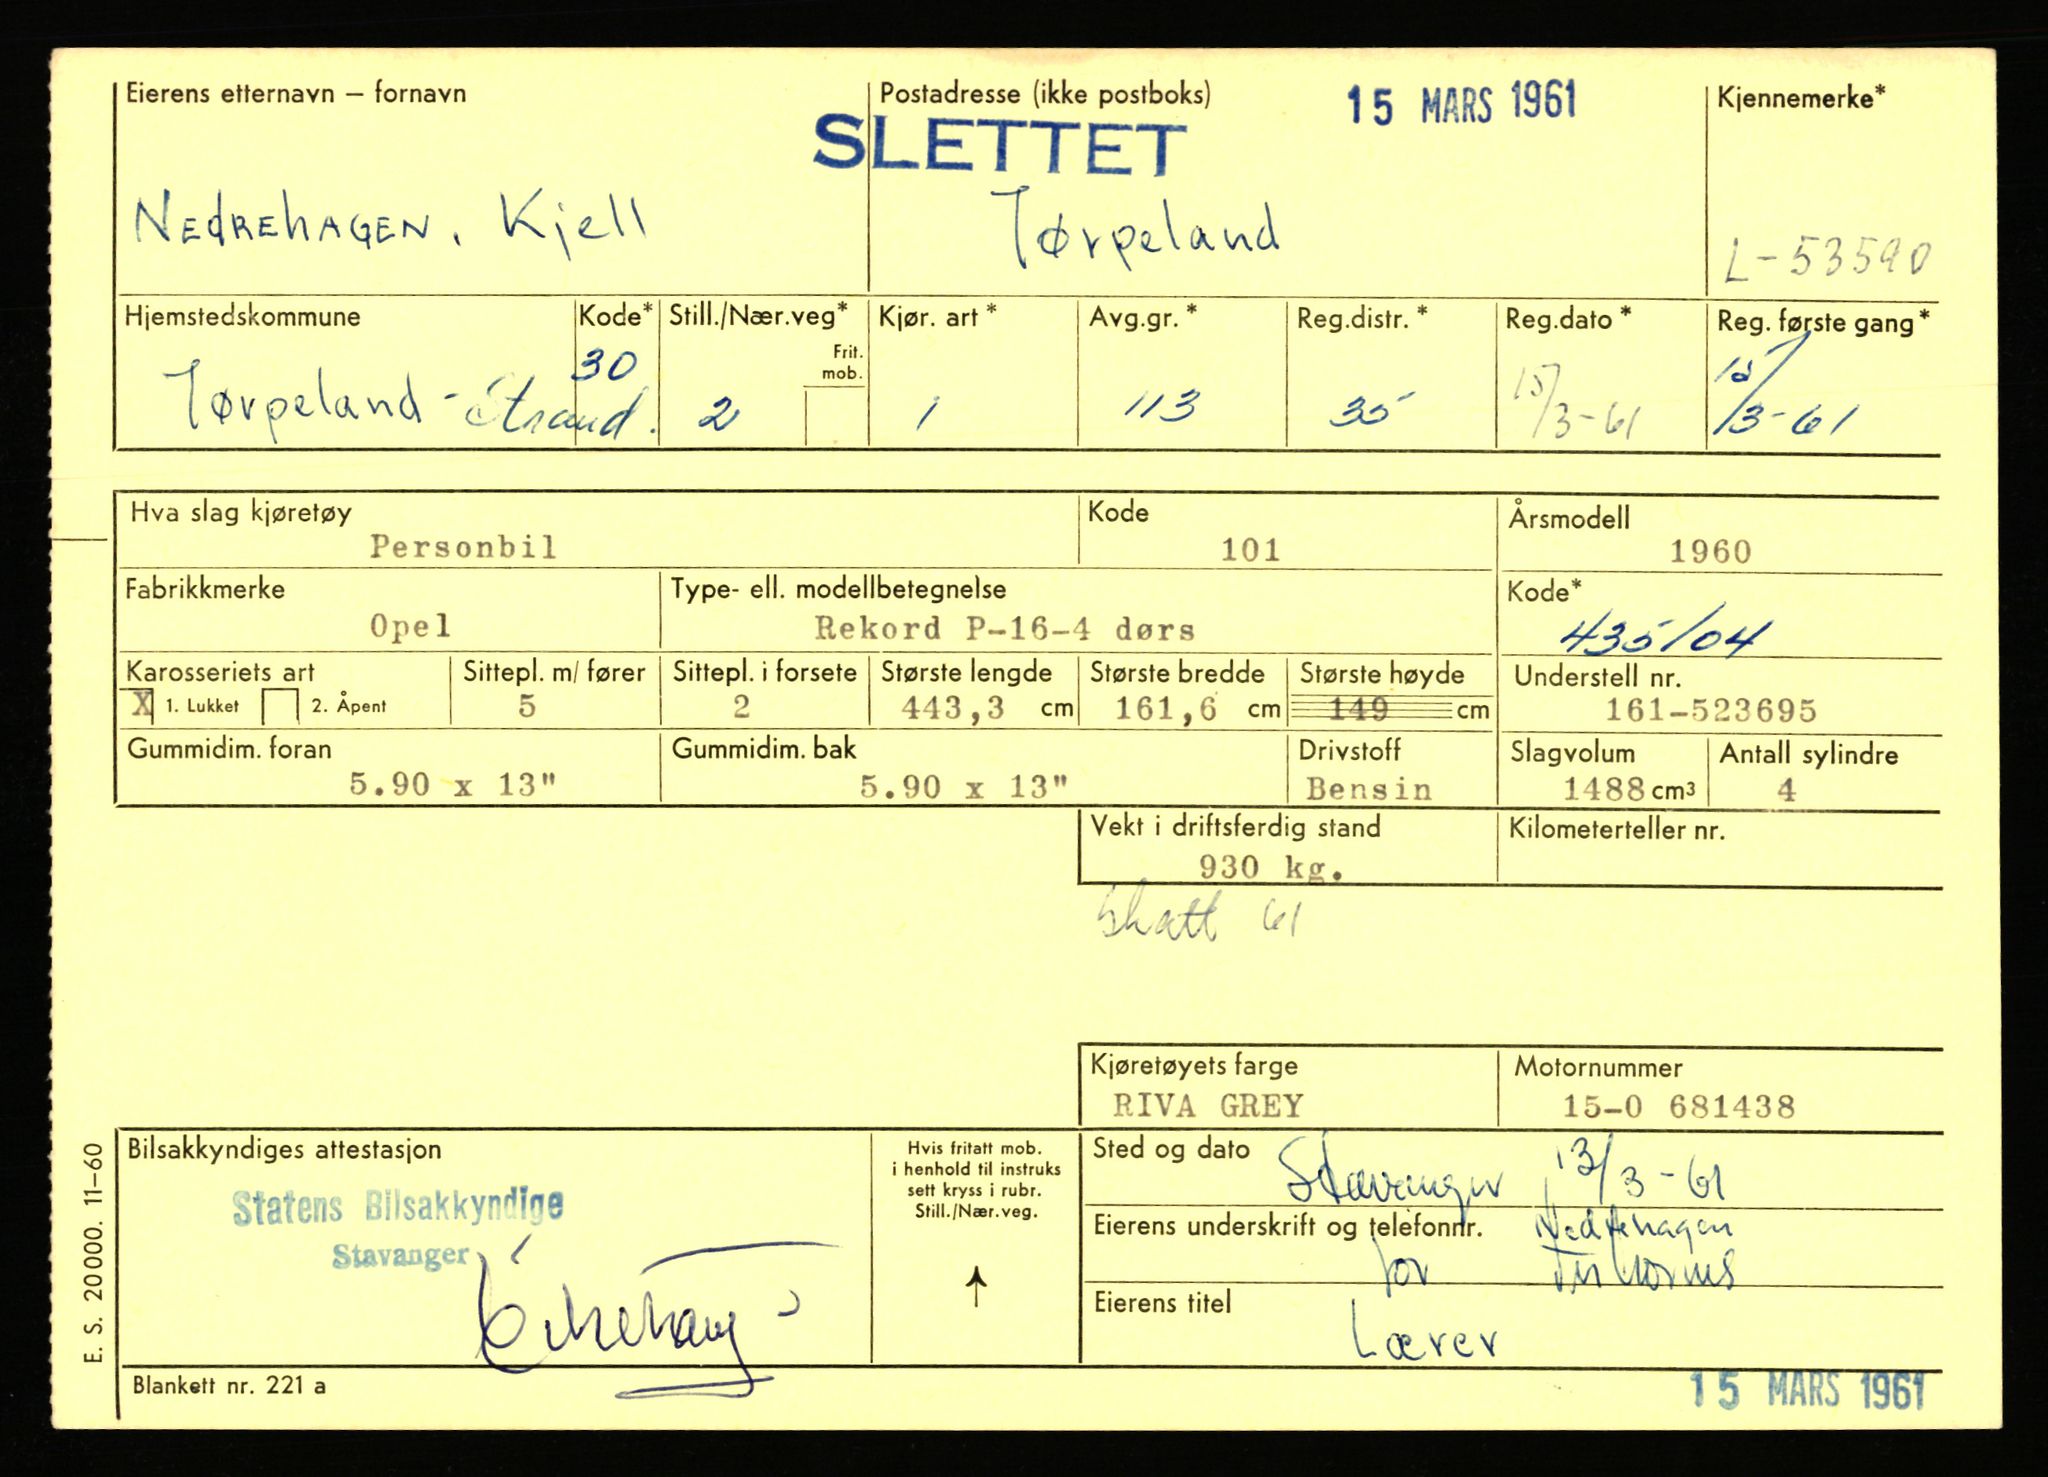 Eierens etternavn – fornavn
Postadresse (ikke postboks)
15 MARS 1961
Kjennemerke*
SLETTET
NEdREhAGEN, Kjell
Jørpeland
L-53590
Hjemstedskommune
Kode*
Still./Nær.veg*
Kjør. art*
Avg.gr.*
Reg.distr.*
Reg.dato*
Reg. første gang*
Frit. mob.
Jørpeland - Strand.
30
2
1
113
35
15/3-61
15/3-61
Hva slag kjøretøy
Kode
Årsmodell
Personbil
101
1960
Fabrikkmerke
Type- ell. modellbetegnelse
Kode*
Opel
Rekord P-16-4 dørs
435/04
Karosseriets art
Sittepl. m/ fører
Sittepl. i forsete
Største lengde
Største bredde
Største høyde
Understell nr.
X 1. Lukket 2. Åpent
5
2
443,3 cm
161,6 cm
149 cm
161-523695
Gummidim. foran
Gummidim. bak
Drivstoff
Slagvolum
Antall sylindre
5.90 x 13"
5.90 x 13"
Bensin
1488 cm³
4
Vekt i driftsferdig stand
Kilometerteller nr.
930 kg.
Skatt 61
Kjøretøyets farge
Motornummer
RIVA GREY
15-0 681438
Bilsakkyndiges attestasjon
Hvis fritatt mob.
i henhold til instruks
sett kryss i rubr.
Still./Nær.veg.
Sted og dato
Stavanger 13/3-61
Statens Bilsakkyndige
Stavanger
Eierens underskrift og telefonnr.
Nedrehagen
for
Eierens titel
Lærer
E. S. 20000. 11–60
Blankett nr. 221 a
15 MARS 1961